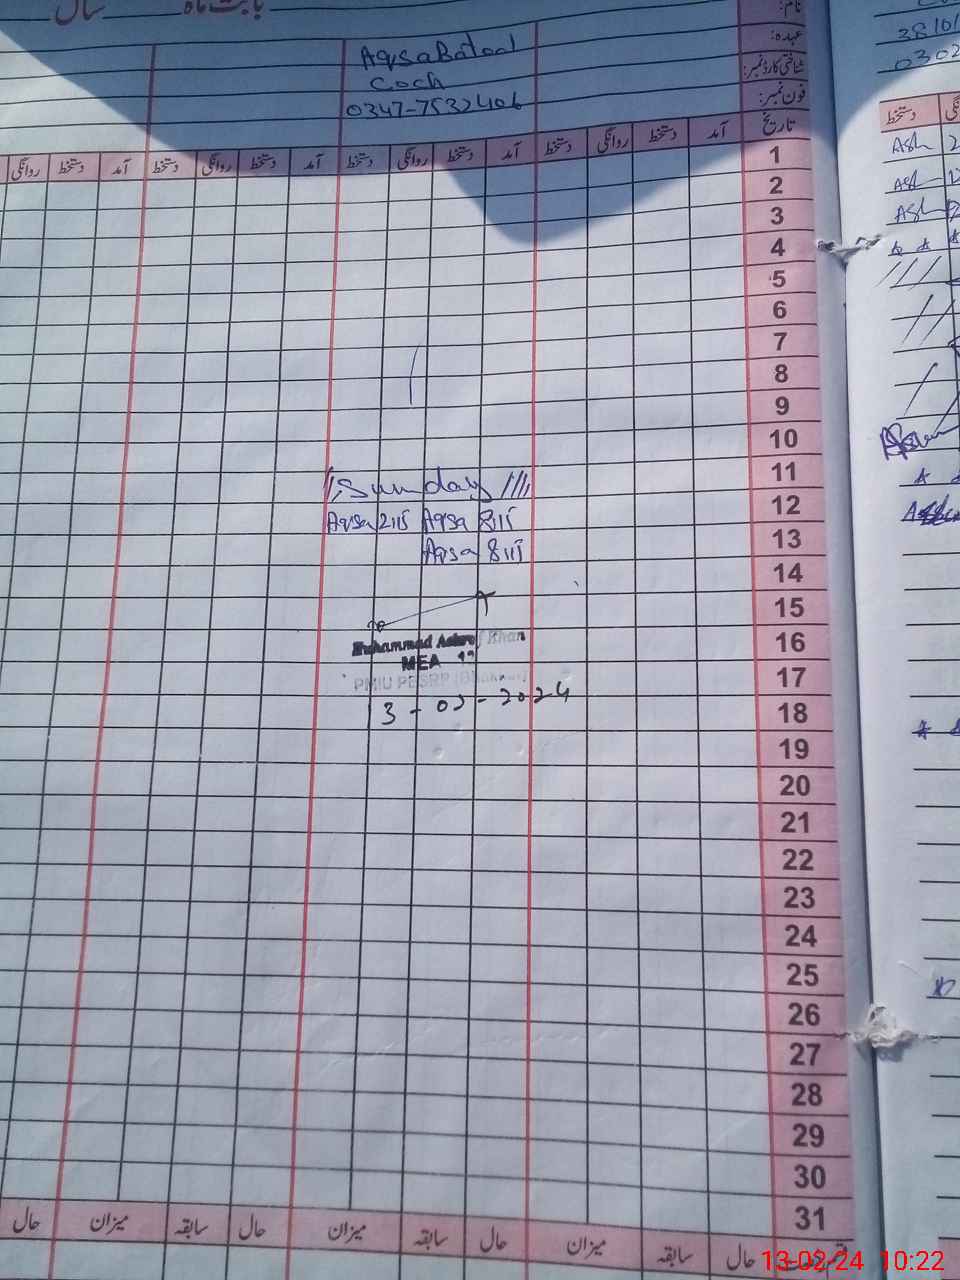 بابت ماہ سال
نام:
عہدہ:
شناختی کارڈ نمبر:
فون نمبر:
Aqsa Batool
Coch
0347-7532406
تاریخ
آمد دستخط روانگی دستخط آمد دستخط روانگی دستخط آمد دستخط روانگی دستخط آمد دستخط روانگی
1
2
3
4
5
6
7
8
9
10
11
Sunday
12
Aqsa 8:15 Aqsa 2:15
13
Aqsa 8:15
14
15
16
Muhammad Ashraf Khan
MEA
17
PMIU PESRP
18
13-02-2024
19
20
21
22
23
24
25
26
27
28
29
30
31
حال سابقہ میزان حال سابقہ میزان حال سابقہ میزان حال
دستخط
Ash
Ash
Ash
13-02-24 10:22